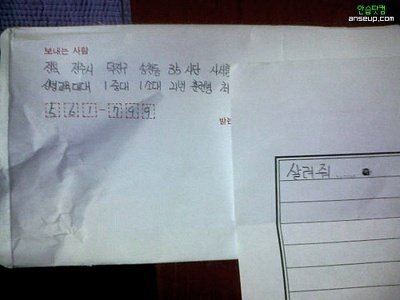 안습닷컴
anseup.com
보내는 사람
전북 전주시 덕진구 송천동 35사단 사서함
신병교육대대 1중대 1소대 21번 훈련병
561-799
받는
살려줘......